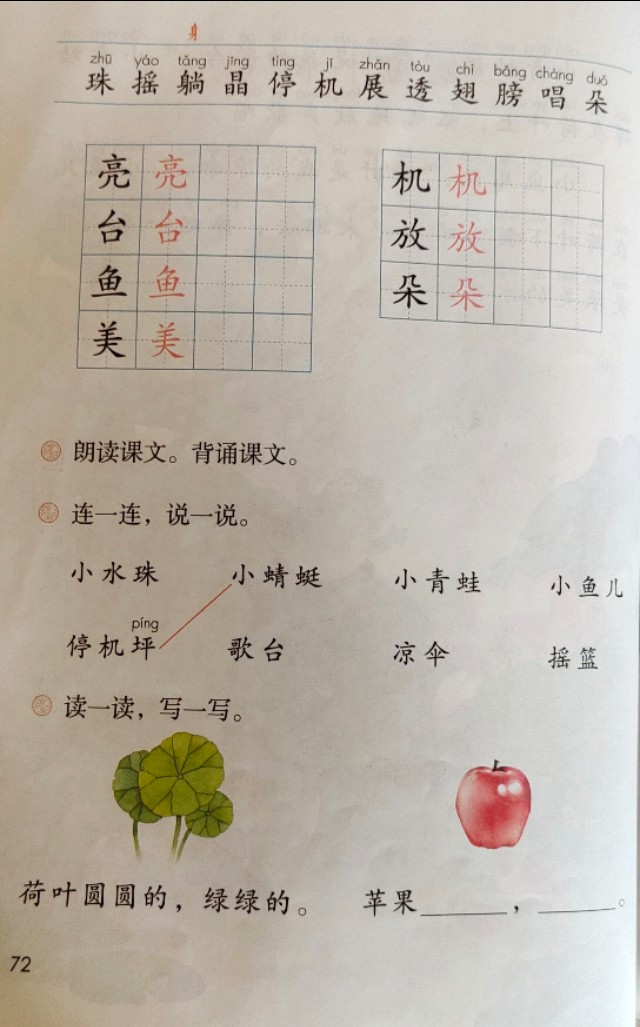 身
zhū yáo tǎng jīng tíng jī zhǎn tòu chì bǎng chàng duǒ
珠 摇 躺 晶 停 机 展 透 翅 膀 唱 朵
亮 亮 机 机
台 台 放 放
鱼 鱼 朵 朵
美 美
朗读课文。背诵课文。
连一连，说一说。
小水珠 小蜻蜓 小青蛙 小鱼儿
píng
停机坪 歌台 凉伞 摇篮
读一读，写一写。
荷叶圆圆的，绿绿的。 苹果______，______。
72